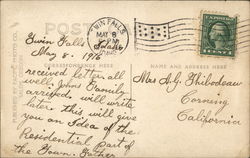 POST
TWIN FALLS
MAY 8
IDAHO
Twin Falls Idaho
May 8 1916
CORRESPONDENCE HERE
NAME AND ADDRESS HERE
received letter all
well; Johns Family
arrived, will write
later. this will give
you an Idea of the
Residential part of
the Town. Father
Mrs A. G. Thibodeau
Corning
California